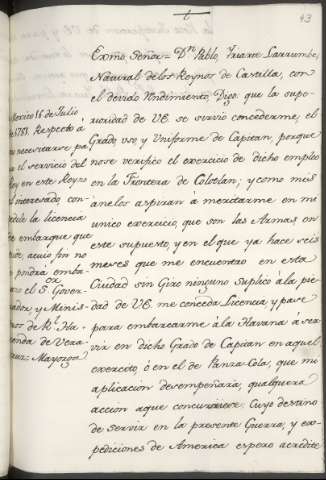 43
Exmo. Señor = Dn. Pablo, Yriarte Larrumbe,
Natural de los Reynos de Castilla, con
el devido Rendimiento, Digo: que la supe-
rioridad de VE. se sirvio concederme, el
Grado, uso, y Uniforme de Capitan, porque
no se verifico el exercicio de dicho empleo
en la Frontera de Colotlan, y como mis
anelos aspiran a meritarme en mi
unico exercicio, que son las Armas en
este supuesto, y en el que ya hace seis
meses que me encuentro en esta
Ciudad sin Giro ninguno suplico à la pie-
dad de VE. me conceda Licencia, y pase
para embarcarme à la Havana à ser-
vir en dicho Grado de Capitan en aquel
exercito, ò en el de Panza-Cola, que mi
aplicacion desempeñaria, qualquiera
accion a que concurriese. Cuyo destino
de servir en la presente Guerra, y ex-
pediciones de America espero acredite
Mexico 16 de Julio
de 1781. Respecto a
no necesitarse pa.
el servicio del
Rey en este Reyno
el interesado, con-
cedele la licencia
de embarque que
pide, acuio fin no
podrá emba-
el Sor. Gover-
nador, y Minis-
de Rl. Ha-
cienda de Vera-
cruz = Mayorga